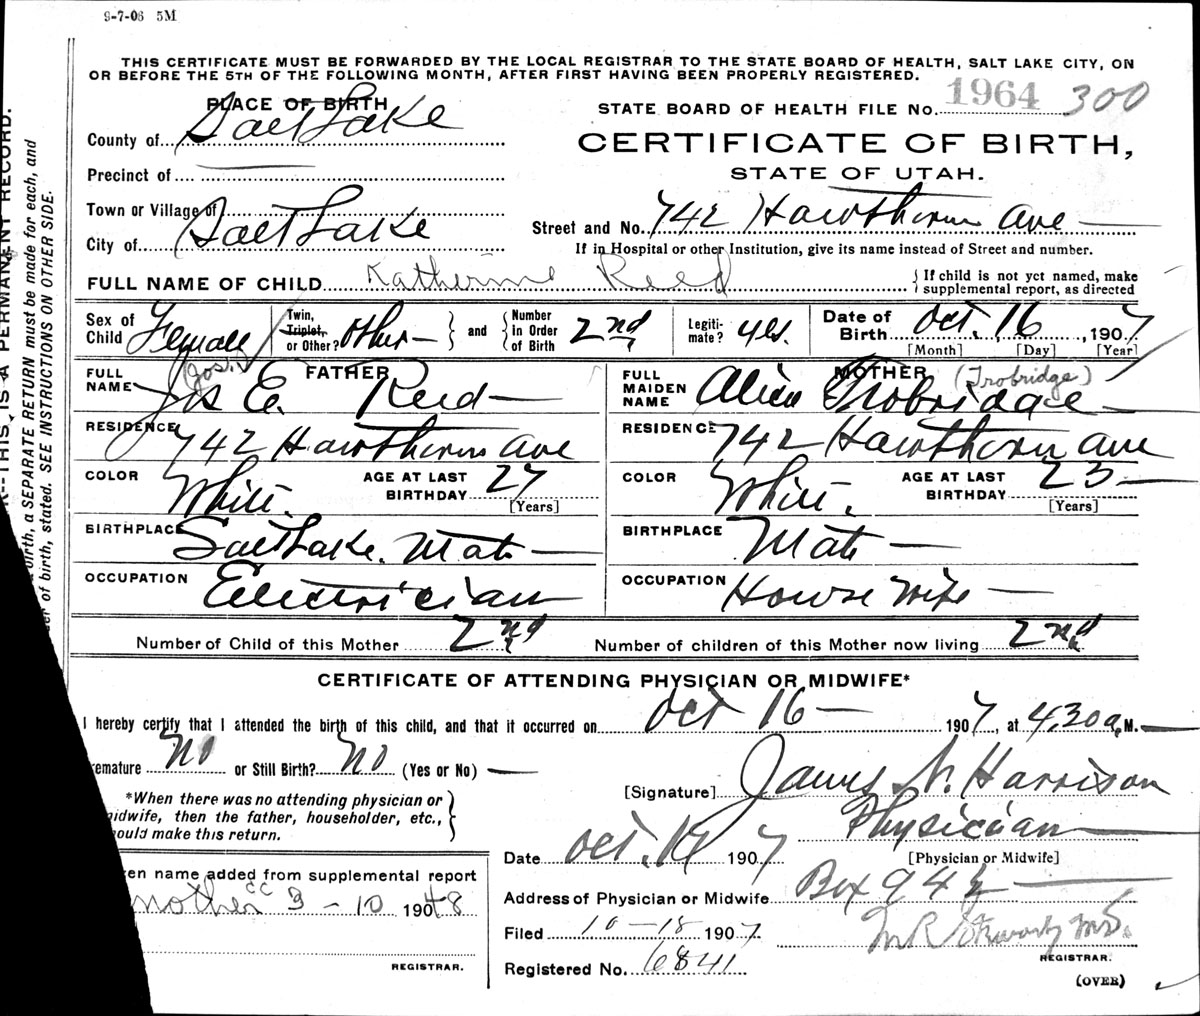 9-7-06 5M
THIS CERTIFICATE MUST BE FORWARDED BY THE LOCAL REGISTRAR TO THE STATE BOARD OF HEALTH, SALT LAKE CITY, ON
OR BEFORE THE 5TH OF THE FOLLOWING MONTH, AFTER FIRST HAVING BEEN PROPERLY REGISTERED.
PLACE OF BIRTH
STATE BOARD OF HEALTH FILE No. 1964 300
County of Salt Lake
CERTIFICATE OF BIRTH,
Precinct of —
STATE OF UTAH.
Town or Village of
Street and No. 742 Hawthorn Ave
City of Salt Lake
If in Hospital or other Institution, give its name instead of Street and number.
FULL NAME OF CHILD Katherine Reed
If child is not yet named, make supplemental report, as directed
Sex of Child Female
Twin, Triplet, or Other? Other — and Number in Order of Birth 2nd
Legitimate? yes.
Date of Birth Oct. 16, 1907
[Month] [Day] [Year]
FATHER
FULL NAME Jos E. Reed (Jos.)
RESIDENCE 742 Hawthorn Ave
COLOR White. AGE AT LAST BIRTHDAY 27 [Years]
BIRTHPLACE Salt Lake. Utah —
OCCUPATION Electrician
MOTHER
FULL MAIDEN NAME Alice Trobridge (Trobridge)
RESIDENCE 742 Hawthorn Ave
COLOR White. AGE AT LAST BIRTHDAY 23 — [Years]
BIRTHPLACE Utah —
OCCUPATION House wife —
Number of Child of this Mother 2nd
Number of children of this Mother now living 2nd
CERTIFICATE OF ATTENDING PHYSICIAN OR MIDWIFE*
I hereby certify that I attended the birth of this child, and that it occurred on Oct 16 — 1907, at 4.30 a.M.
remature No or Still Birth? No (Yes or No) —
[Signature] James N. Harrison
Physician
[Physician or Midwife]
*When there was no attending physician or
idwife, then the father, householder, etc.,
ould make this return.
Date Oct. 1907
Address of Physician or Midwife Box
en name added from supplemental report
mother cc 3 - 10 1948
REGISTRAR.
Filed 10-18 1907
M.D.
REGISTRAR.
Registered No. 6841
(OVER)
THIS IS A PERMANENT RECORD.
birth, a SEPARATE RETURN must be made for each, and
er of birth, stated. SEE INSTRUCTIONS ON OTHER SIDE.